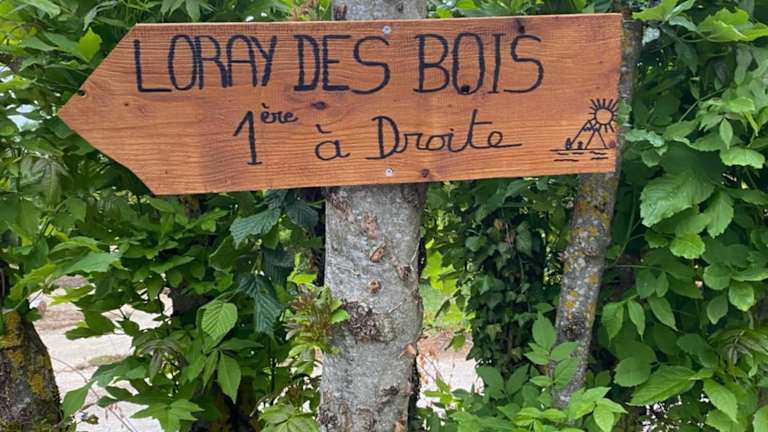 LORAY DES BOIS
1ère à Droite